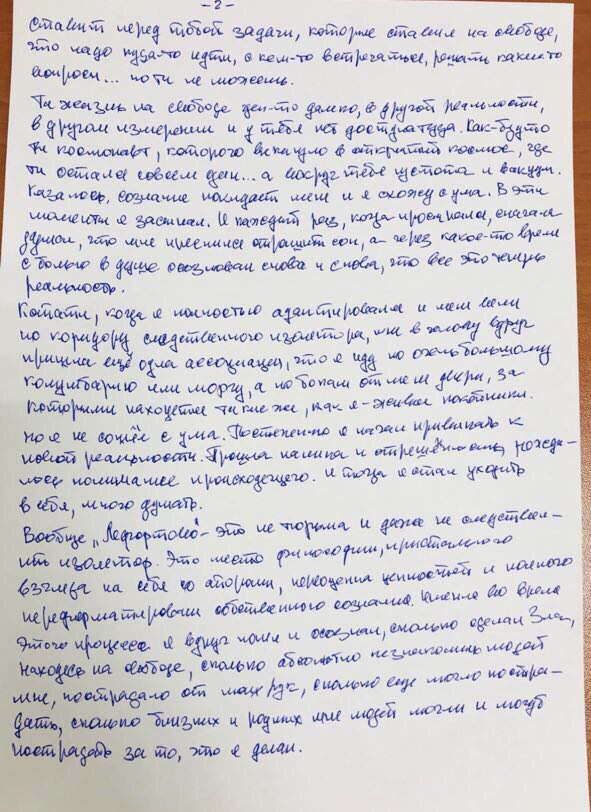 - 2 -
ставит перед тобой задачи, которые ставил на свободе,
что надо куда-то идти, с кем-то встречаться, решать какие-то
вопросы... но ты не можешь.
Та жизнь на свободе где-то далеко, в другой реальности,
в другом измерении и у тебя нет доступа туда. Как-будто
ты космонавт, которого выкинуло в открытый космос, где
ты остался совсем один... а вокруг тебя пустота и вакуум.
Казалось, сознание покидает меня и я схожу с ума. В эти
моменты я засыпал. И каждый раз, когда просыпался, сначала
думал, что мне приснился страшный сон, а через какое-то время
с болью в душе осознавал снова и снова, что все это теперь
реальность.
Кстати, когда я полностью адаптировался и меня вели
по коридору следственного изолятора, мне в голову вдруг
пришла ещё одна ассоциация, что я иду по очень большому
колумбарию или моргу, а по бокам от меня двери, за
которыми находятся такие же, как я - живые покойники.
Но я не сошёл с ума. Постепенно я начал привыкать к
новой реальности. Прошла паника и отрешённость, рождалось
понимание происходящего. И тогда я стал уходить
в себя, много думать.
Вообще „Лефортово" - это не тюрьма и даже не следствен-
ный изолятор. Это место философии, пристального
взгляда на себя со стороны, переоценки ценностей и полного
переформатирования собственного сознания. Именно во время
этого процесса я вдруг понял и осознал, сколько сделал Зла,
находясь на свободе, сколько абсолютно незнакомых людей
мне, пострадало от моих рук, сколько еще могло постра-
дать, сколько близких и родных мне людей могли и могут
пострадать за то, что я делал.